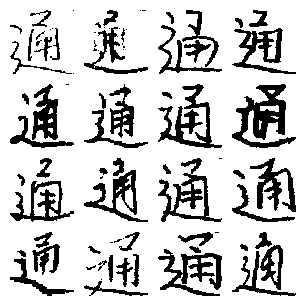 通通通通
通通通通
通通通通
通通通通